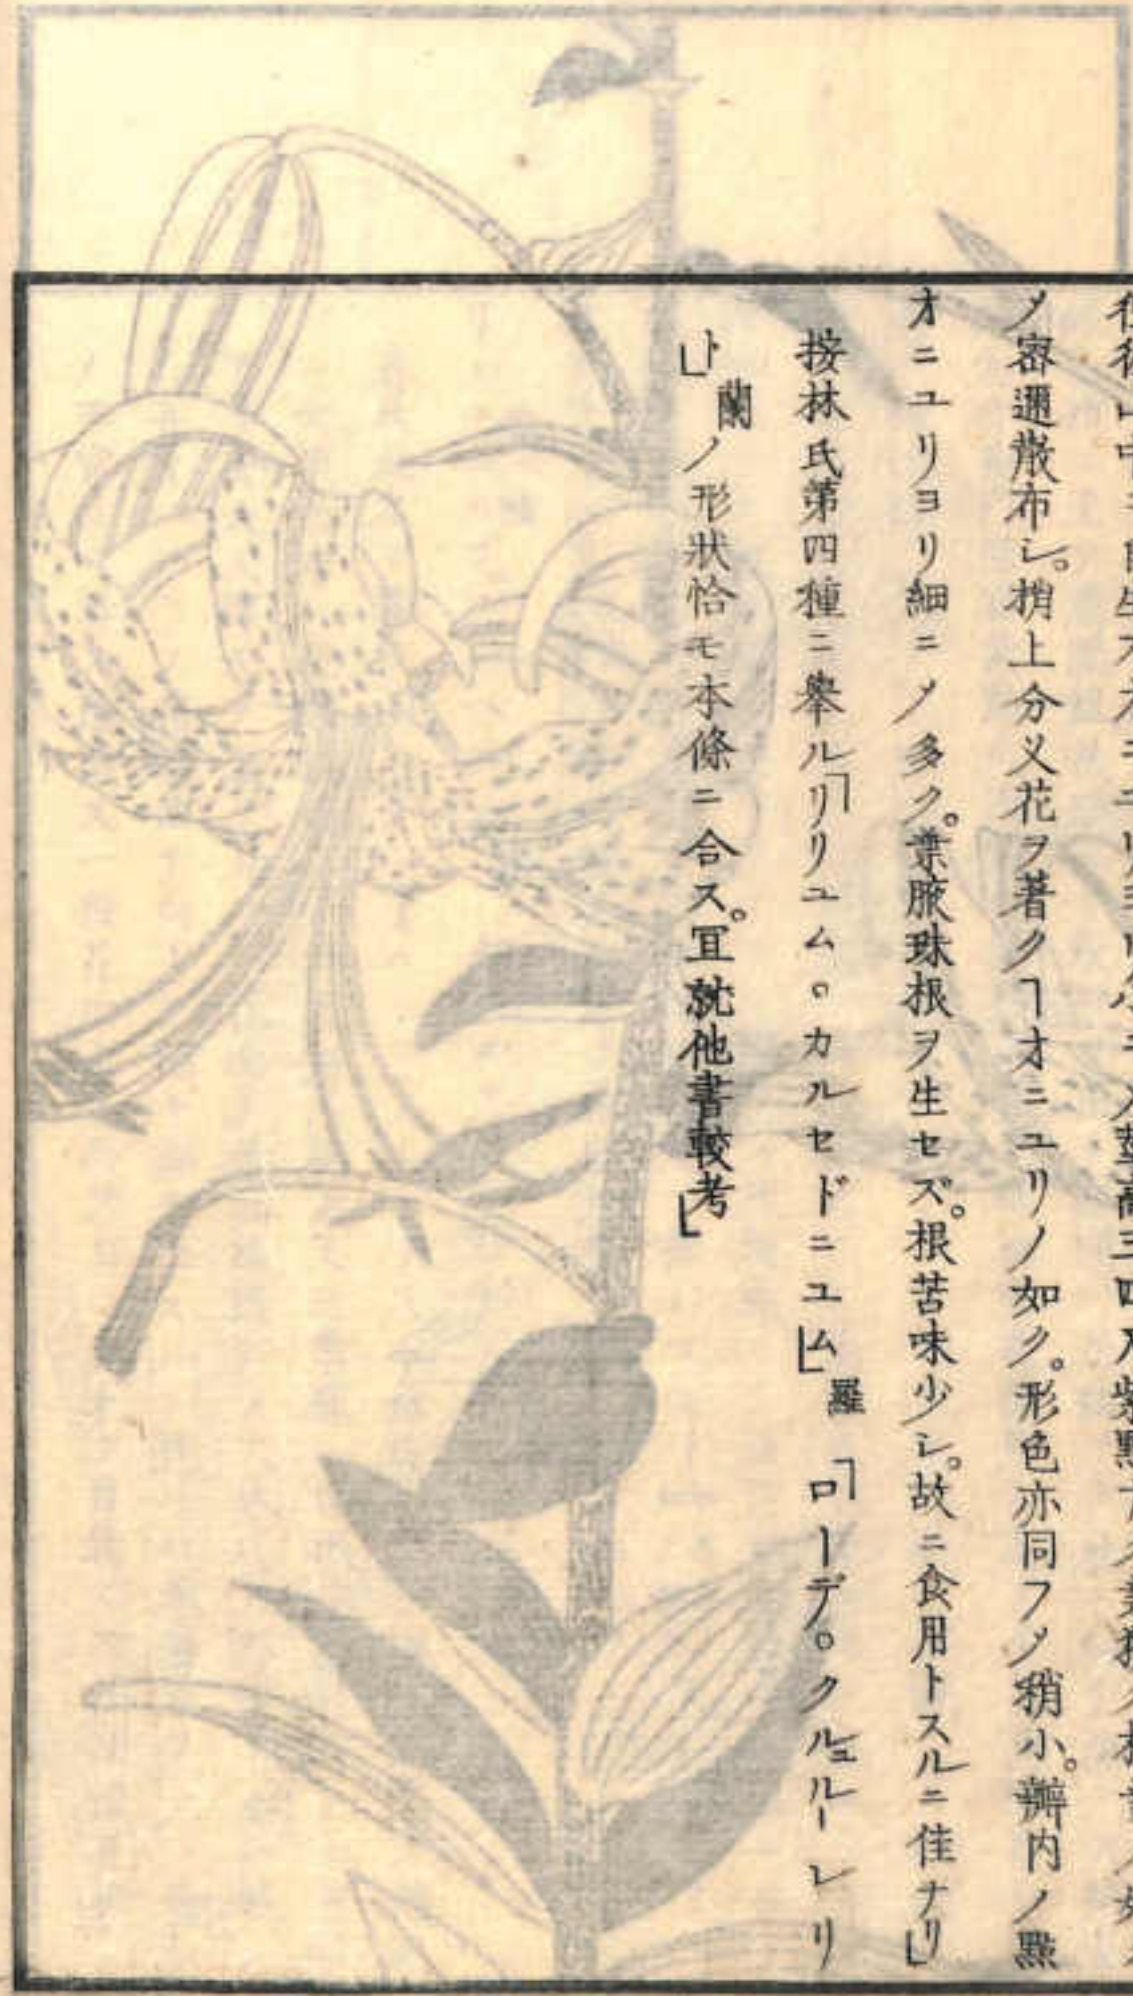 山中ニ自生ス
ノ密邇散布シ。梢上分义花ヲ著クヿオニユリノ如ク。形色亦同フメ稍小。瓣内ノ點
オニユリヨリ細ニメ多ク。葉腋珠根ヲ生セズ。根苦味少シ。故ニ食用トスルニ佳ナリ」
按林氏第四種ニ舉ル「リリユム。カルセドニユム」羅「ローデ。クルユルーレリ
ト」蘭ノ形狀恰モ本條ニ合ス。宜就他書較考」